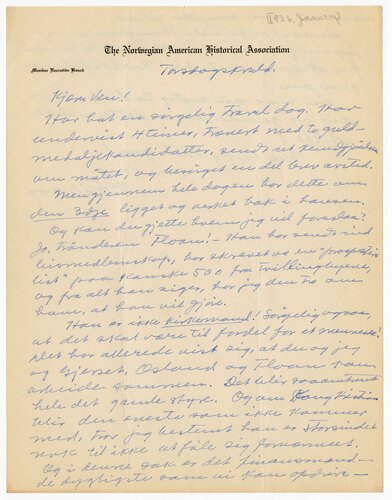 [1926, January]
The Norwegian American Historical Association
Member Executive Board
Torsdagskveld.
Kjære Ven!
Har hat en sørgelig travel dag. Har
undervist 4 timer, travert med to guld-
medaljekandidater, sendt ut kundgjørelsen
om møtet, og besørget en del brev avsted.
Men gjennem hele dagen har dette om
den 3dje ligget og verket bak i hausen.
Og kan du gjette hvem jeg vil foreslaa?
Jo, Trønderen Floan! – Han har sendt ind
livsmedlemskap, har skrevet os en "prospective
list" paa kanske 500 fra Tvillingbyene,
og fra alt han siger, har jeg den tro om
ham, at han vil gjøre.
Han er ikke kirkemand! Sørgelig ogsaa,
at det skal være til fordel for et menneske!
Det har allerede vist sig, at du og jeg
og Gjerset, Osland og Floan kan
arbeide sammen. Det blir saaomtrent
hele det gamle styre. Og om
blir den eneste som ikke kommer
med, tror jeg bestemt han er storsindet
nok til ikke at føle sig fornærmet.
Og i denne sak er det finansmænd –
de dygtigste som vi kan opdrive –